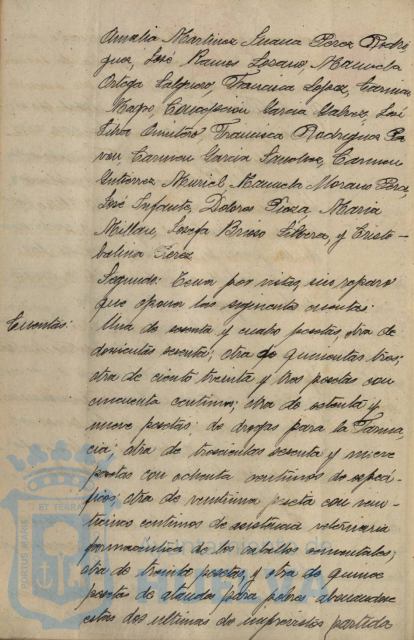 Amalia Martinez Juana Perez Rodri-
guez, José Ramos Lozano, Manuela
Ortega Salguero, Francisca Lopez, Carmen
Mapo, Concepcion Garcia Galvez, José
Silva, Francisca Rodriguez Pa-
von, Carmen Garcia Sanchez, Carmen
Gutierrez Muriel, Manuela Morano Perez,
José Infante, Dolores Pieza Maria
Millan, Josefa Brioso Silvera, y Cristo-
balina Perez
Segundo: Tener por vistas, sin reparo
que oponer las siguientes cuentas:
Cuentas:
Una de sesenta y cuatro pesetas, otra de
doscientas sesenta; otra de quinientas tres;
otra de ciento treinta y tres pesetas con
cincuenta centimos; otra de setenta y
nueve pesetas; de drogas para la Farma-
cia; otra de trescientas sesenta y nueve
pesetas con ochenta centimos de especi-
ficos; otra de veintiuna peseta con vein-
ticinco centimos de asistencia veterinaria
farmaceutica de los caballos;
otra de treinta pesetas, y otra de quince
pesetas de ataudes para pobres abonandose
estas dos ultimas de imprevistos partida
PORTUS MARIS ET TERRAE
Ayuntamiento de
HUELVA